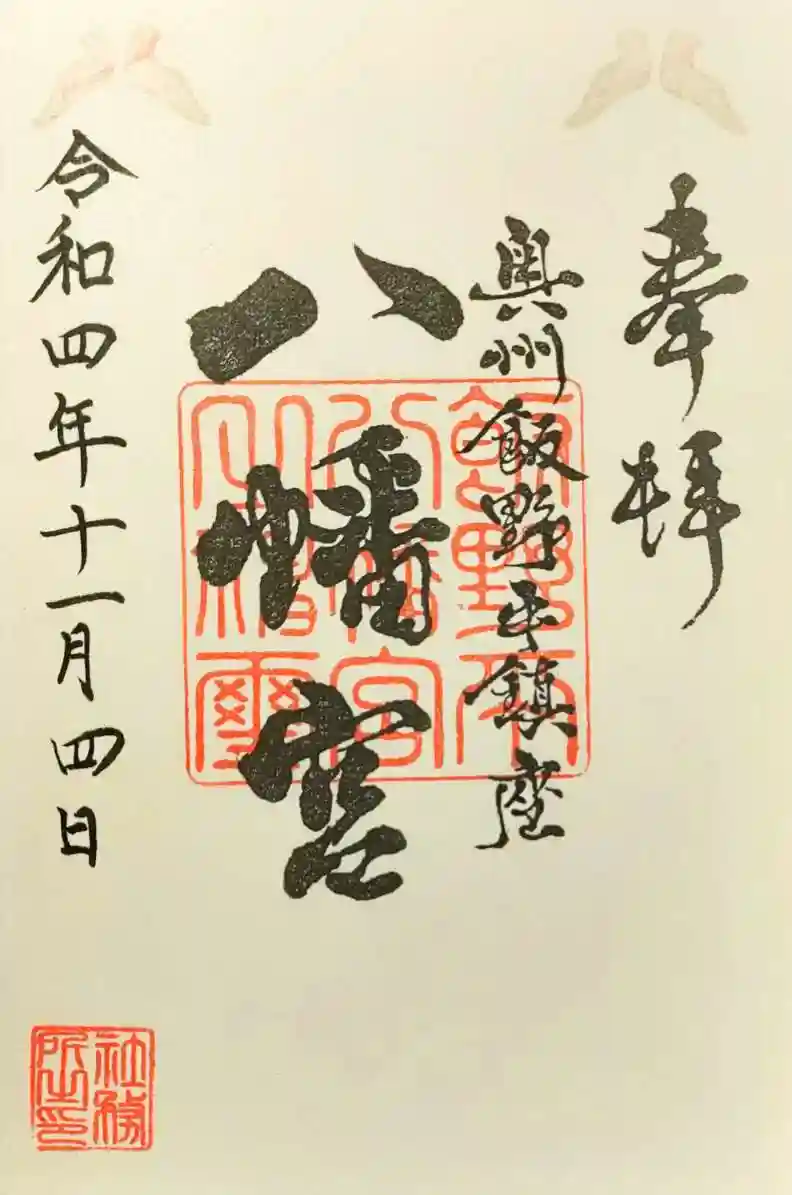 奉拝
奥州飯野平鎮座
八幡宮
令和四年十一月四日
飯野平
八幡宮
社務
所印